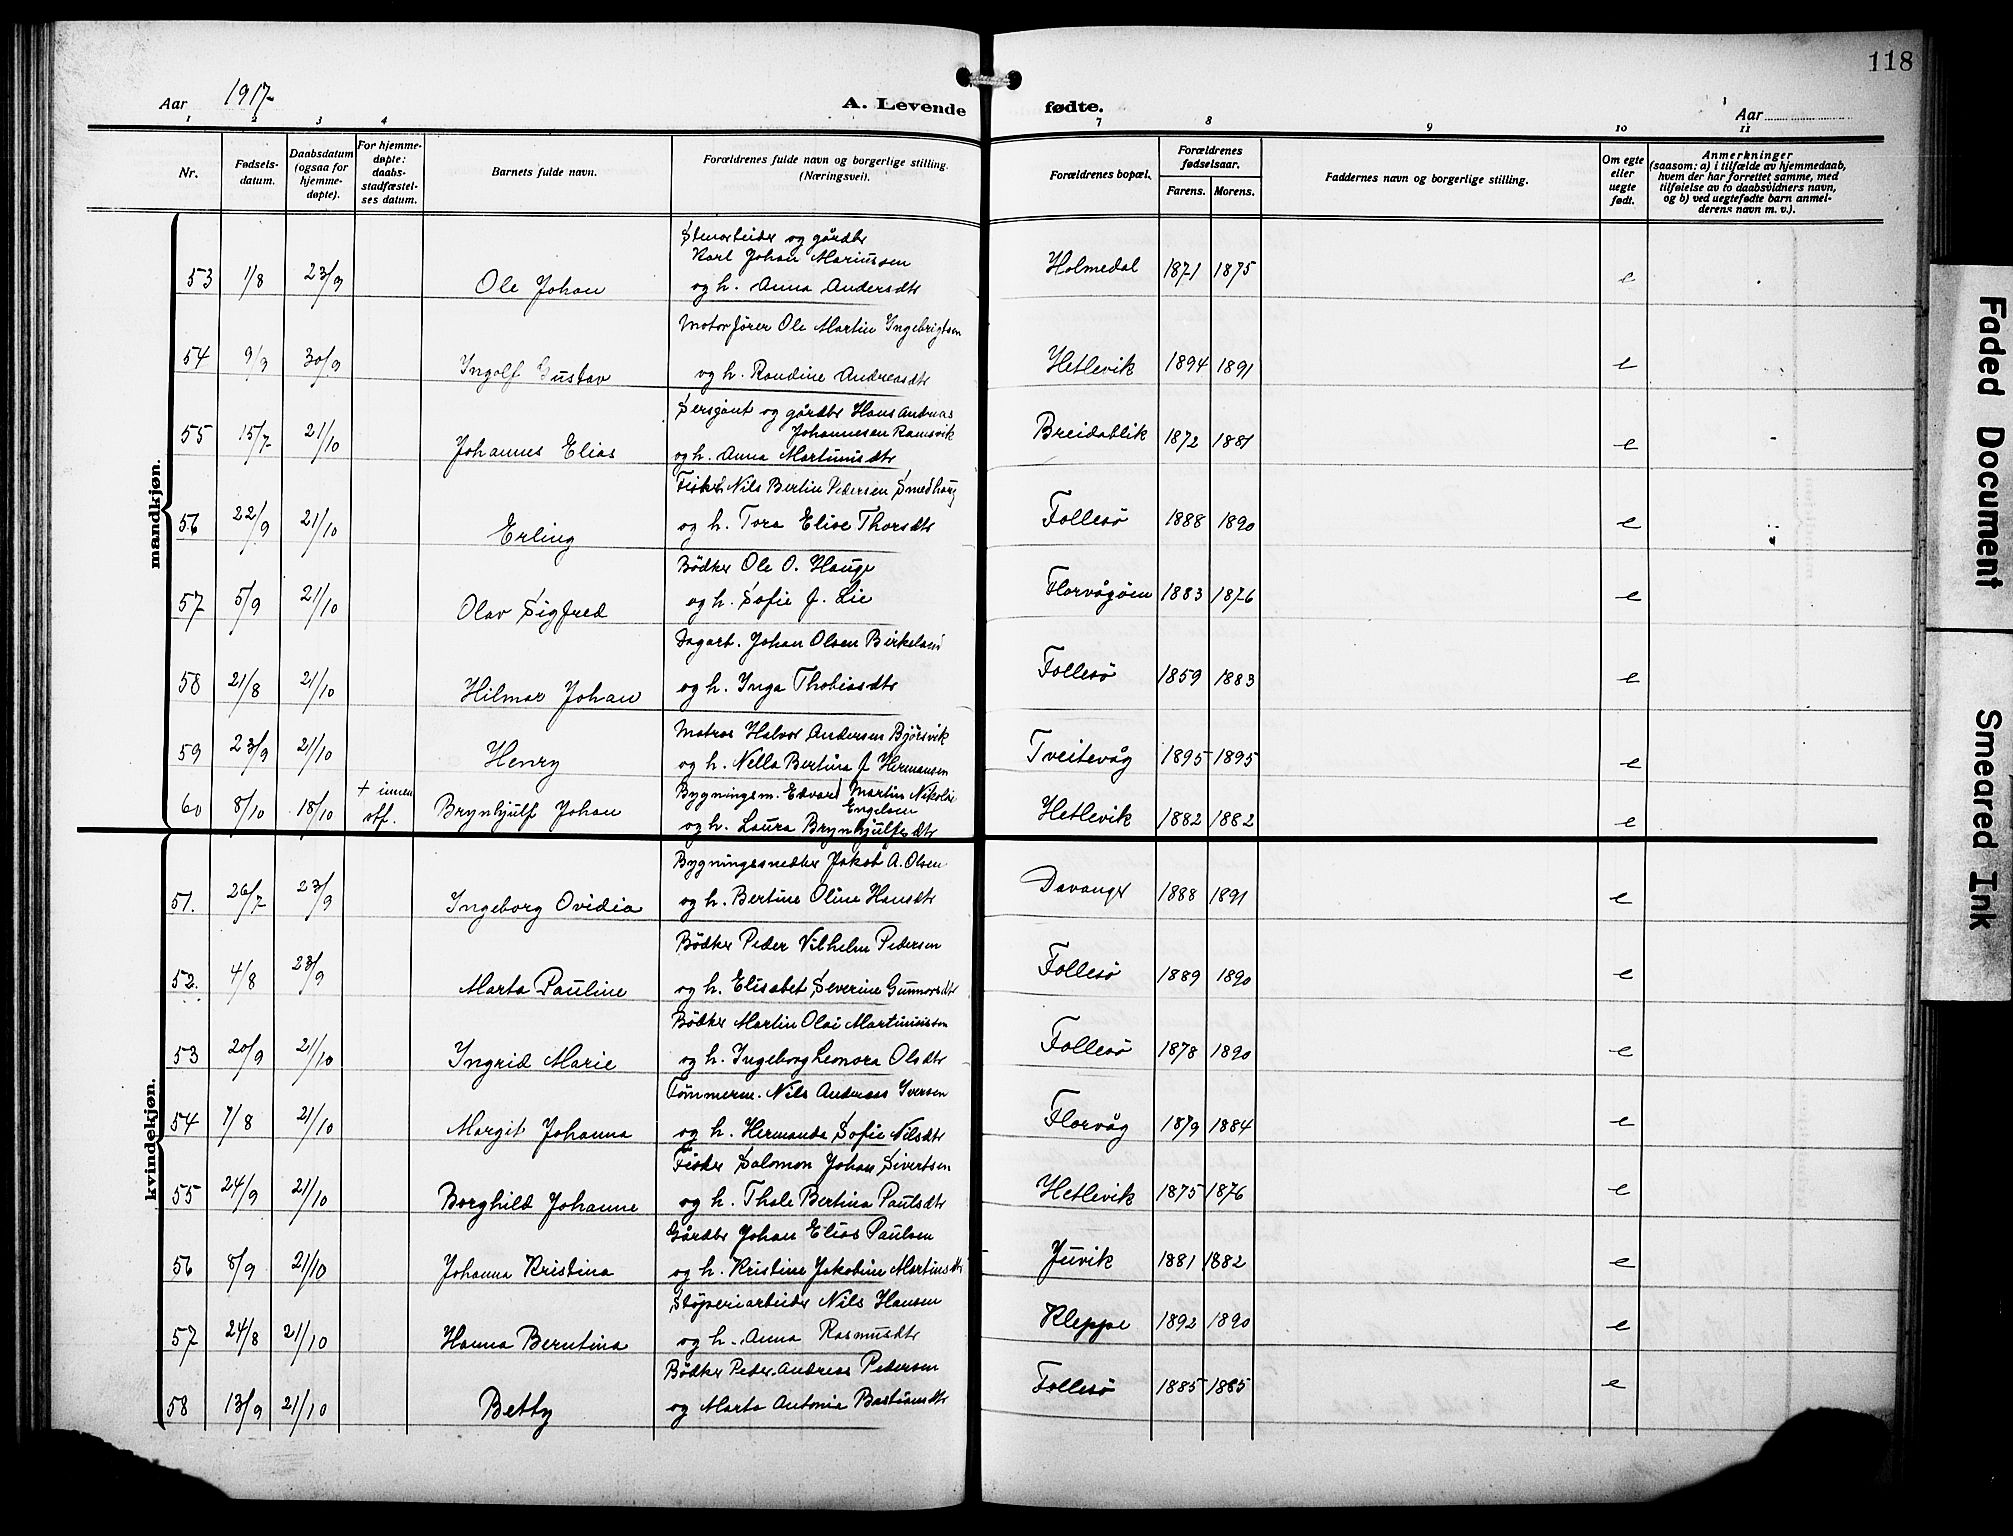 118
Aar 1917 A. Levende fødte. Aar
1 2 3 4 7 8 9 10 11
Nr. Fødsels-datum. Daabsdatum (ogsaa for hjemme-døpte). For hjemme-døpte: daabs-stadfæstel-ses datum. Barnets fulde navn. Forældrenes fulde navn og borgerlige stilling. (Næringsvei). Forældrenes bopæl. Forældrenes fødselsaar. Farens. Morens. Faddernes navn og borgerlige stilling. Om egte eller uegte født. Anmerkninger (saasom: a) i tilfælde av hjemmedaab, hvem der har forrettet samme, med tilføielse av to daabsvidners navn, og b) ved uegtefødte barn anmel-derens navn m. v.).
mandkjøn.
Stenarbeider og gårdbr
Karl Johan Mariussen
53 1/8 23/9 Ole Johan og h. Anna Andersdtr Holmedal 1871 1875 e
Motorfører Ole Martin Ingebrigtsen
54 9/9 30/9 Ingolf Gustav og h. Randine Andreasdtr Hetlevik 1894 1891 e
Sersjant og gårdbr Hans Andreas
Johannesen Ramsvik
55 15/7 21/10 Johannes Elias og h. Anna Martinusdtr Breidablik 1872 1881 e
Fisker Nils Bertin Pedersen Smedhaug
56 22/9 21/10 Erling og h. Tora Elise Thorsdtr Follesö 1888 1890 e
Bödker Ole O. Hauge
57 5/9 21/10 Olav Sigfred og h. Sofie J. Lie Florvågöen 1883 1876 e
Dagarb. Johan Olsen Birkeland
58 21/8 21/10 Hilmar Johan og h. Inga Thobiasdtr Follesö 1859 1883 e
Matros Halvor Andersen Bjørsvik
59 23/9 21/10 Henry og h. Nella Bertina J Hermansen Tveitevåg 1895 1895 e
Bygningsm. Edvard Martin Nikolai
Engelsen
60 8/10 18/10 + innen stf. Brynhjulf Johan og h. Laura Brynhjulfsdtr Hetlevik 1882 1882 e
kvindekjøn.
Bygningssnedker Jakob A. Olsen
51. 26/7 23/9 Ingeborg Ovidia og h. Bertine Oline Hansdtr Davanger 1888 1891 e
Bödker Peder Vilhelm Pedersen
52. 4/8 23/9 Marta Pauline og h. Elisabet Severine Gunnarsdtr Follesö 1889 1890 e
Bödker Martin Olai Martinussen
53 20/9 21/10 Ingrid Marie og h. Ingeborg Leonora Olsdtr Follesö 1878 1890 e
Tömmerm. Nils Andreas Iversen
54 7/8 21/10 Margit Johanna og h. Hermanda Sofie Nilsdtr Florvåg 1879 1884 e
Fisker Salomon Johan Sivertsen
55 24/9 21/10 Borghild Johanne og h. Thale Bertina Paulsdtr Hetlevik 1875 1876 e
Gårdbr Johan Elias Paulsen
56 8/9 21/10 Johanna Kristina og h. Kristine Jakobine Martinsdtr Juvik 1881 1882 e
Støperiarbeider Nils Hansen
57 24/8 21/10 Hanna Berntina og h. Anna Rasmusdtr Kleppe 1892 1890 e
Bödker Peder Andreas Pedersen
58 13/9 21/10 Betty og Marta Antonia Bastiansdtr Follesö 1885 1885 e
Faded Document
Smeared Ink